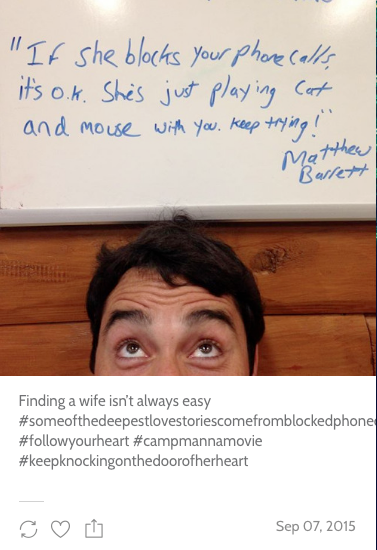 "If she blocks your phone calls,
it's o.k. She's just playing cat
and mouse with you. Keep trying!"
Matthew
Barrett
Finding a wife isn't always easy
#someofthedeepestlovestoriescomefromblockedphone
#followyourheart #campmannamovie
#keepknockingonthedoorofherheart
Sep 07, 2015